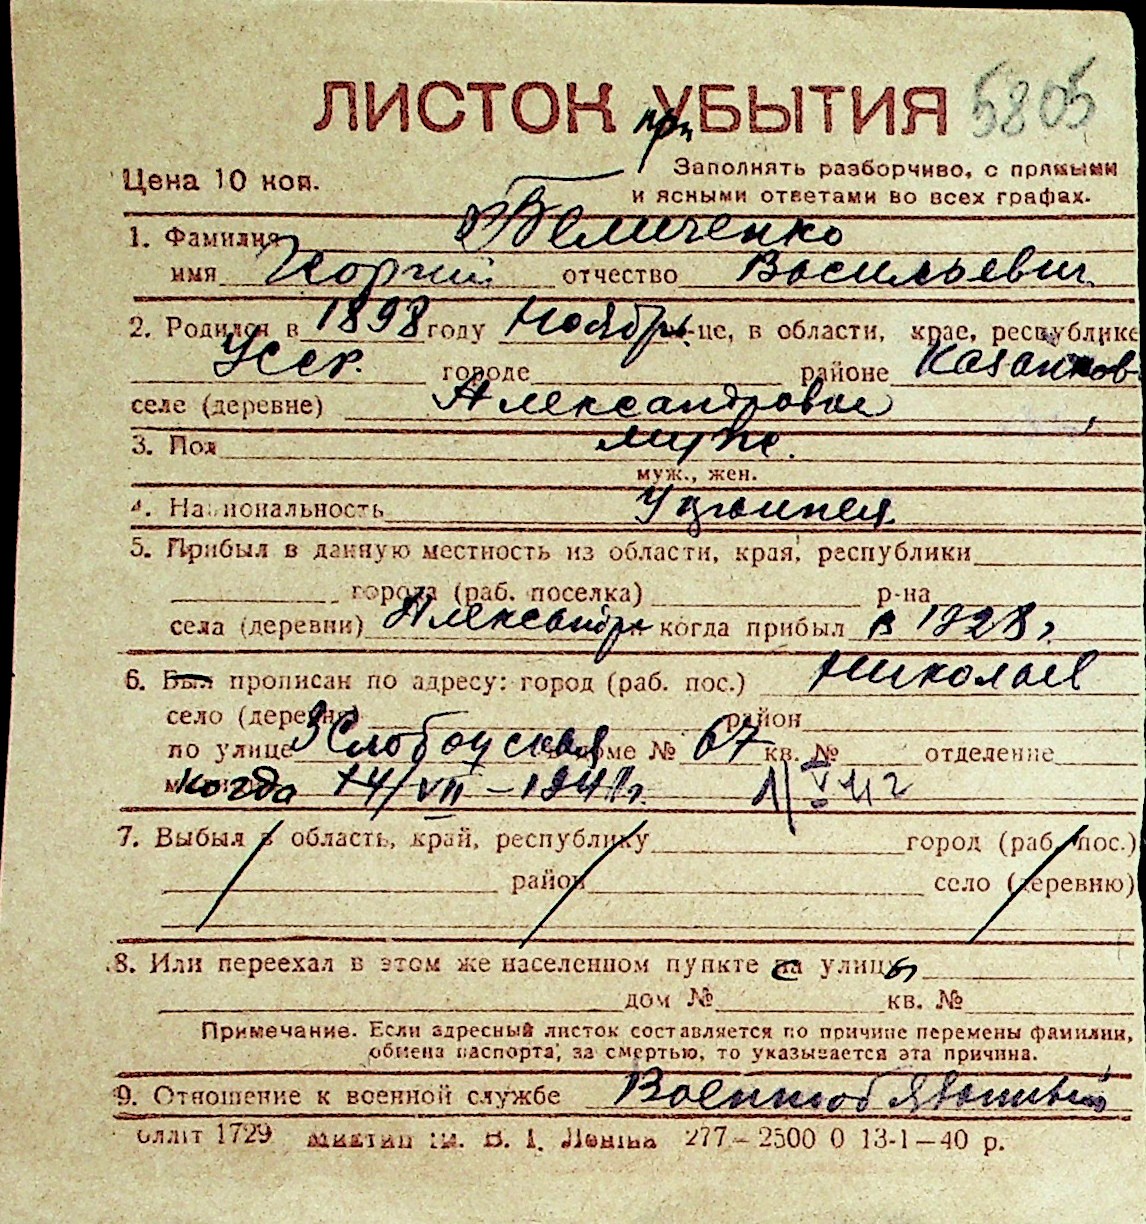 ЛИСТОК УБЫТИЯ 5805
при
Цена 10 коп. Заполнять разборчиво, с прямыми
и ясными ответами во всех графах.
1. Фамилия Величенко
имя Георгий отчество Васильевич
2. Родился в 1898 году Ноябр. м-це, в области, крае, республике
Усср. городе районе Казанков
селе (деревне) Александровке
3. Пол муж.
муж., жен.
4. Национальность Украинец
5. Прибыл в данную местность из области, края, республики
города (раб. поселка) р-на
села (деревни) Александр когда прибыл в 1928г
6. Был прописан по адресу: город (раб. пос.) Николаев
село (деревня) район
по улице 3 Слободская в доме № 67 кв. № отделение
когда 14/VII-1941г. 1/V 41г
7. Выбыл в область, край, республику город (раб. пос.)
район село (деревню)
8. Или переехал в этом же населенном пункте с улицы
дом № кв. №
Примечание. Если адресный листок составляется по причине перемены фамилии,
обмена паспорта, за смертью, то указывается эта причина.
9. Отношение к военной службе Военнообязанный
1729 277–2500 0 13-1–40 р.